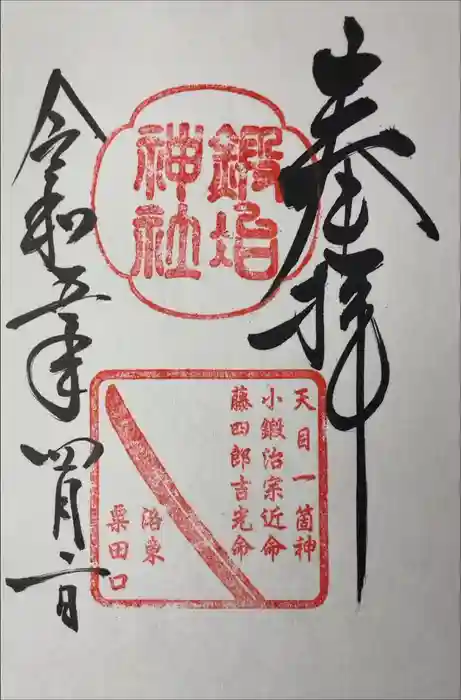 奉拝
鍛冶
神社
天目一箇神
小鍛冶宗近命
藤四郎吉光命
洛東
粟田口
令和五年四月二日